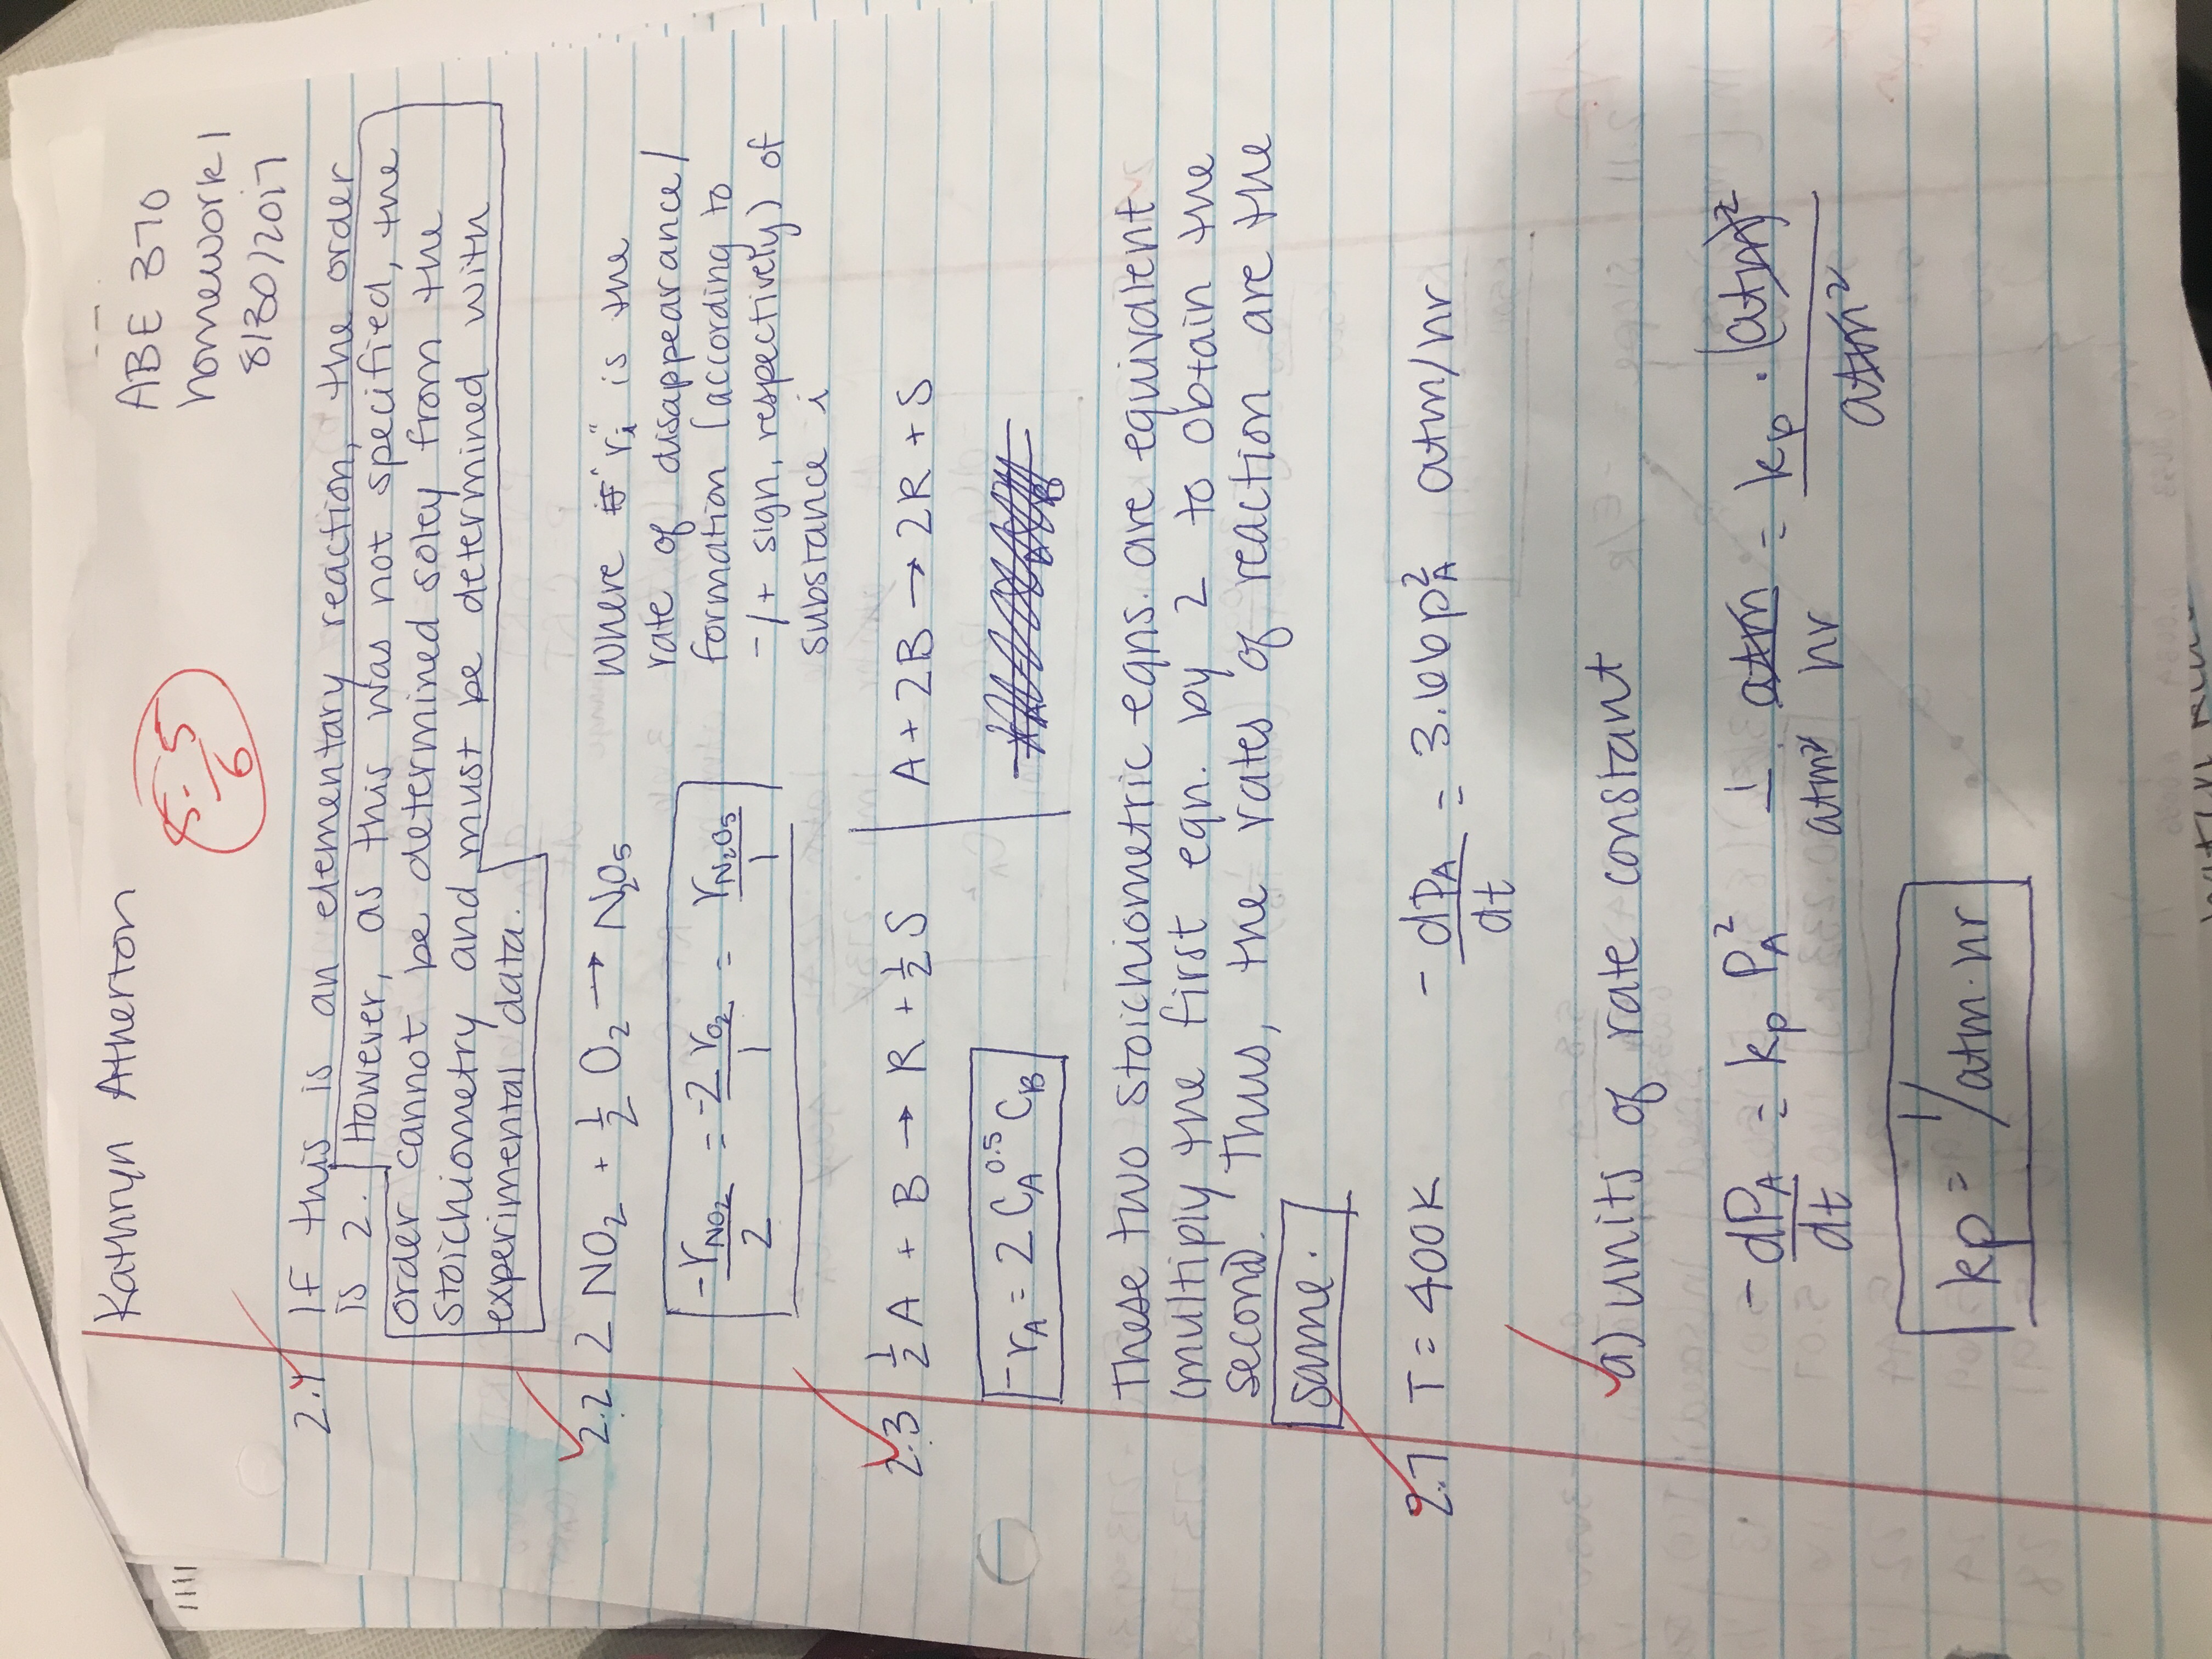 Kathryn Atherton
ABE 370
homework 1
8/30/2017
5.5
6
2.1 If this is an elementary reaction, the order
is 2. However, as this was not specified, the
order cannot be determined soley from the
stoichiometry and must be determined with
experimental data.
2.2 2 NO₂ + ½ O₂ → N₂O₅
-r_NO₂/2 = -2 r_O₂/1 = r_N₂O₅/1
where "r_i" is the
rate of disappearance/
formation (according to
-/+ sign, respectively) of
substance i
2.3 ½ A + B → R + ½ S
A + 2B → 2R + S
-r_A = 2 C_A^0.5 C_B
These two stoichiometric eqns. are equivalent
(multiply the first eqn. by 2 to obtain the
second). Thus, the rates of reaction are the
same.
2.7 T = 400K -dP_A/dt = 3.66 p_A² atm/hr
a) units of rate constant
-dP_A/dt = kp P_A² 1/atm² · atm/hr = kp · (atm)²/atm²
kp = 1/atm·hr